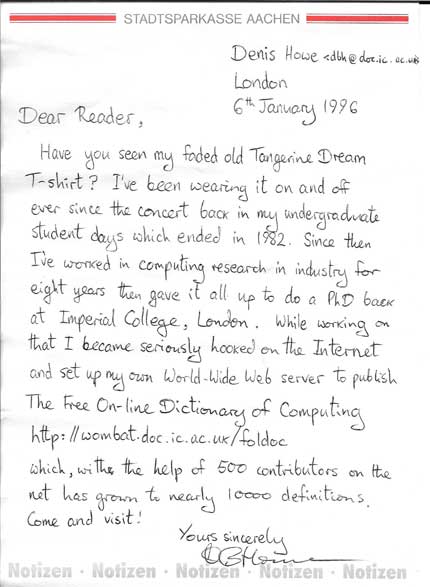 STADTSPARKASSE AACHEN
Denis Howe <dbh@doc.ic.ac.uk>
London
6th January 1996
Dear Reader,
Have you seen my faded old Tangerine Dream
T-shirt? I've been wearing it on and off
ever since the concert back in my undergraduate
student days which ended in 1982. Since then
I've worked in computing research in industry for
eight years then gave it all up to do a PhD back
at Imperial College, London. While working on
that I became seriously hooked on the Internet
and set up my own World-Wide Web server to publish
The Free On-line Dictionary of Computing
http://wombat.doc.ic.ac.uk/foldoc
which, with the help of 500 contributors on the
net has grown to nearly 10000 definitions.
Come and visit!
Yours sincerely
DBHowe
Notizen · Notizen · Notizen · Notizen · Notizen